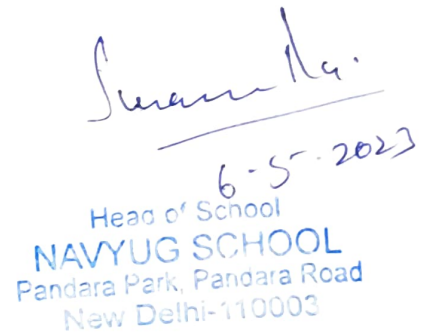 6-5-2023
Head of School
NAVYUG SCHOOL
Pandara Park, Pandara Road
New Delhi-110003